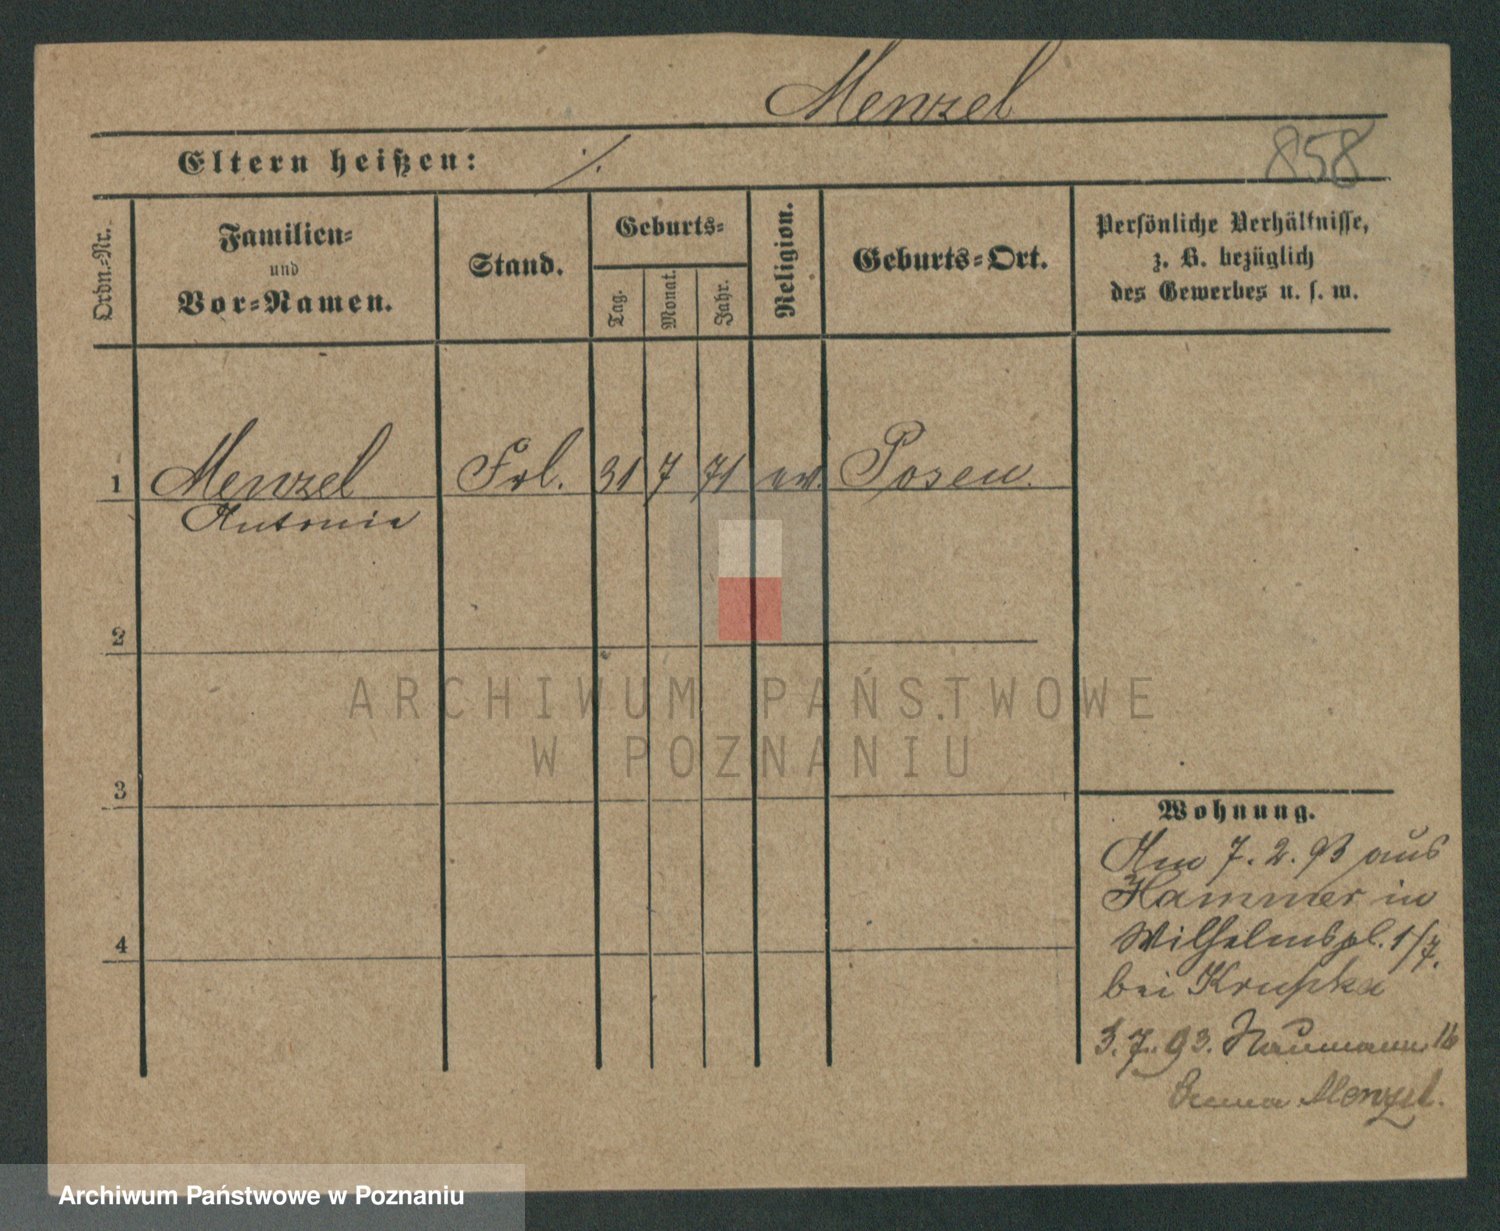 Menzel
858
Eltern heißen: ./.
Ordn.-Nr.
Familien-
und
Vor-Namen.
Stand.
Geburts-
Tag.
Monat.
Jahr.
Religion.
Geburts-Ort.
Persönliche Verhältnisse,
z. B. bezüglich
des Gewerbes u. s. w.
1 Menzel Frl. 31 7 71 ev. Posen.
Antonie
2
ARCHIWUM PAŃSTWOWE
W POZNANIU
3
Wohnung.
Am 7. 2. 93 aus
Hammer in
Wilhelmspl. 1/7.
4
bei Krupka
3. 7. 93. Naumann 16
Menzel.
Archiwum Państwowe w Poznaniu